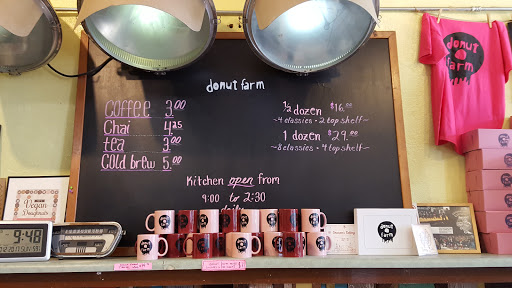 donut farm
COFFEE 3.00
Chai 4.25
tea 3.00
COLD BREW 5.00
½ dozen $16.00
~4 classics • 2 top shelf~
1 dozen $29.00
~8 classics • 4 top shelf~
Kitchen open from
9:00 to 2:30
daily
donut
farm
Vegan
Doughnuts
9:48
donut
farm